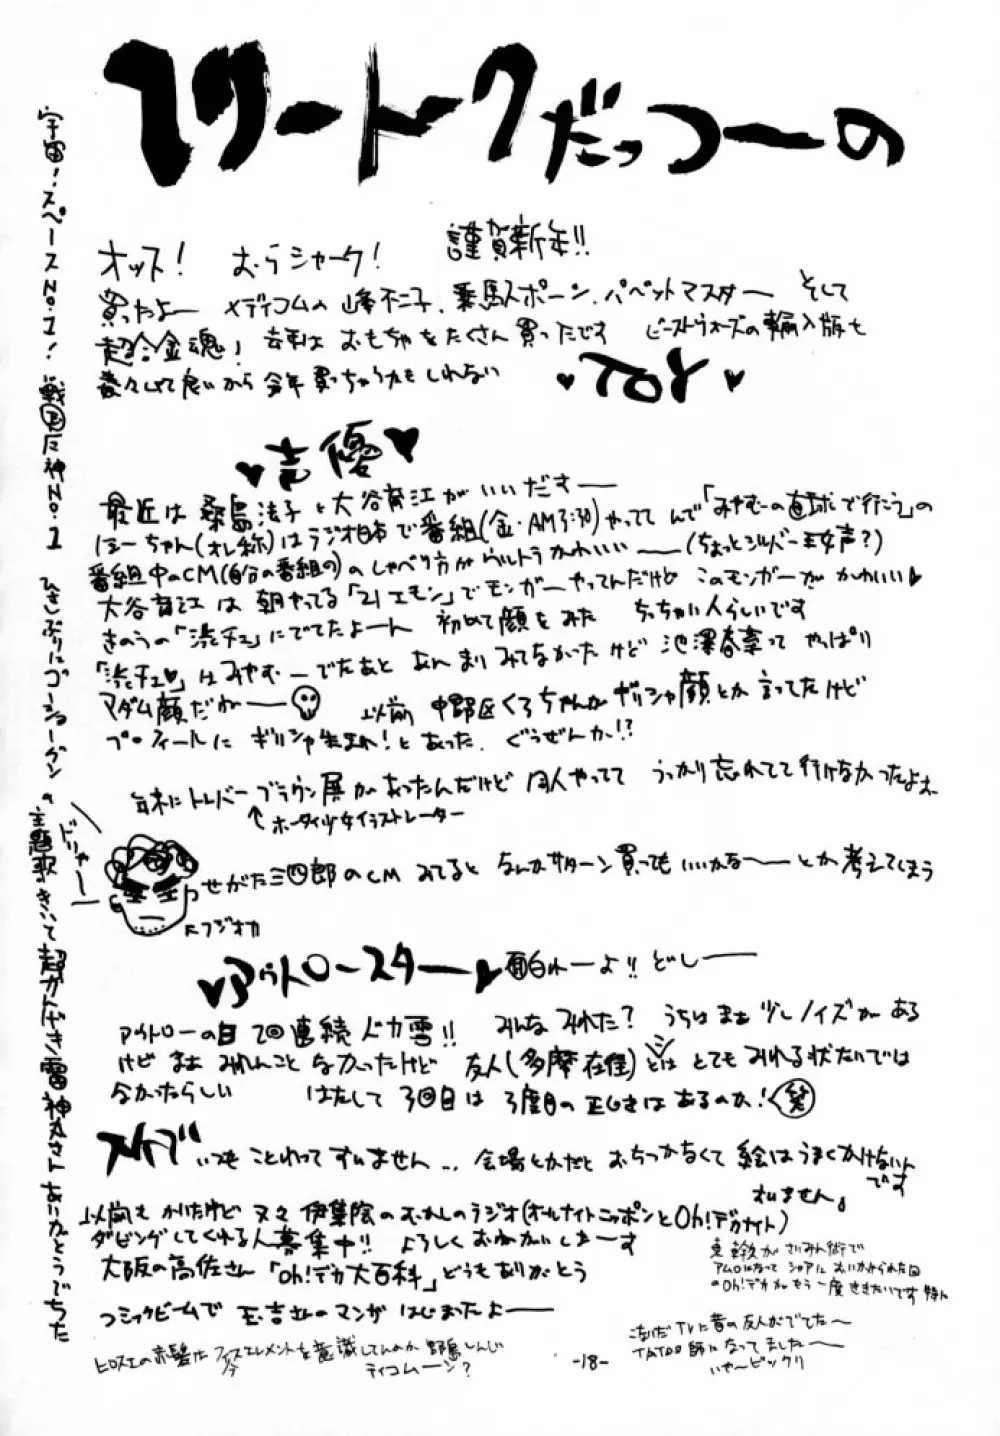 フリートークだっつーの
オッス! むらシャーク! 謹賀新年!!
買ったよー メディコムの峰不二子、乗馬スポーン、パペットマスター そして
超合金魂! 去年はおもちゃをたくさん買ったです ビーストウォーズの輸入版も
着々として良いから今年買っちゃうかもしれない
TOY
声優
最近は桑島法子と大谷育江がいいだすー
ほーちゃん(オレ称)はラジオ日本で番組(金・AM3:30)やってて んで「みやむーの直球で行こう」の
番組中のCM(自分の番組の)のしゃべり方がウルトラかわいいー(ちょっとシルバー王女声?)
大谷育江は朝やってる「21エモン」でモンガーやってんだけど このモンガーがかわいい
きのうの「渋チェ」にでてたよーん 初めて顔をみた ちっちゃい人らしいです
「渋チェ♥」はみやむーでたあと あんまりみてなかったけど 池澤春菜って やっぱり
マダム顔だねー 以前 中野区くろちゃんがギリシャ顔とか言ってたけど
プロフィールに ギリシャ生まれ!とあった、ぐうぜんか!?
年末にトレバーブラウン展があったんだけど 同人やってて うっかり忘れてて行けなかったよぉ
↑ホータイ少女イラストレーター
ドリャー
せがた三四郎のCM みてると なんかサターン買ってもいいかなーとか考えてしまう
フジオカ
アウトロースター 面白れーよ!! どしー
アウトローの日 2回連続ドカ雪!! みんなみれた? うちはまぁ少しノイズがある
けど まぁ みれんこと なかったけど 友人(多摩在住)とは とてもみれる状たいでは
なかったらしい はたして3回目は3度目の正じきはあるのか! 笑
スケブ いつも ことわってすいません… 会場とかだと おちつかなくて 絵はうまくかけないん
です
すいません。
以前も かいたけど 又々 伊集院のむかしのラジオ(オールナイトニッポンとOh!デカナイト)
ダビングしてくれる人募集中!! よろしくおねがいしまーす
大阪の高佐さん「Oh!デカ大百科」どうもありがとう
東幹久がさいみん術で
アムロになって シャアにおいかけられた回
のOh!デカがもう一度ききたいです 特に
コミックビームで 玉吉さんのマンガ はじまったよー
こないだTVに昔の友人がでてたー
TATOO師になってましたー
いやービックリ
ヒロスエの赤髪は フィフスエレメントを意識してんのか 野島しんじ
ディコムーン?
-18-
宇宙!スペースNo.1! 戦国反神No.1 ひさしぶりにゴーショーグンの主題歌きいて超かんげき 雷神丸さんありがとうでちた